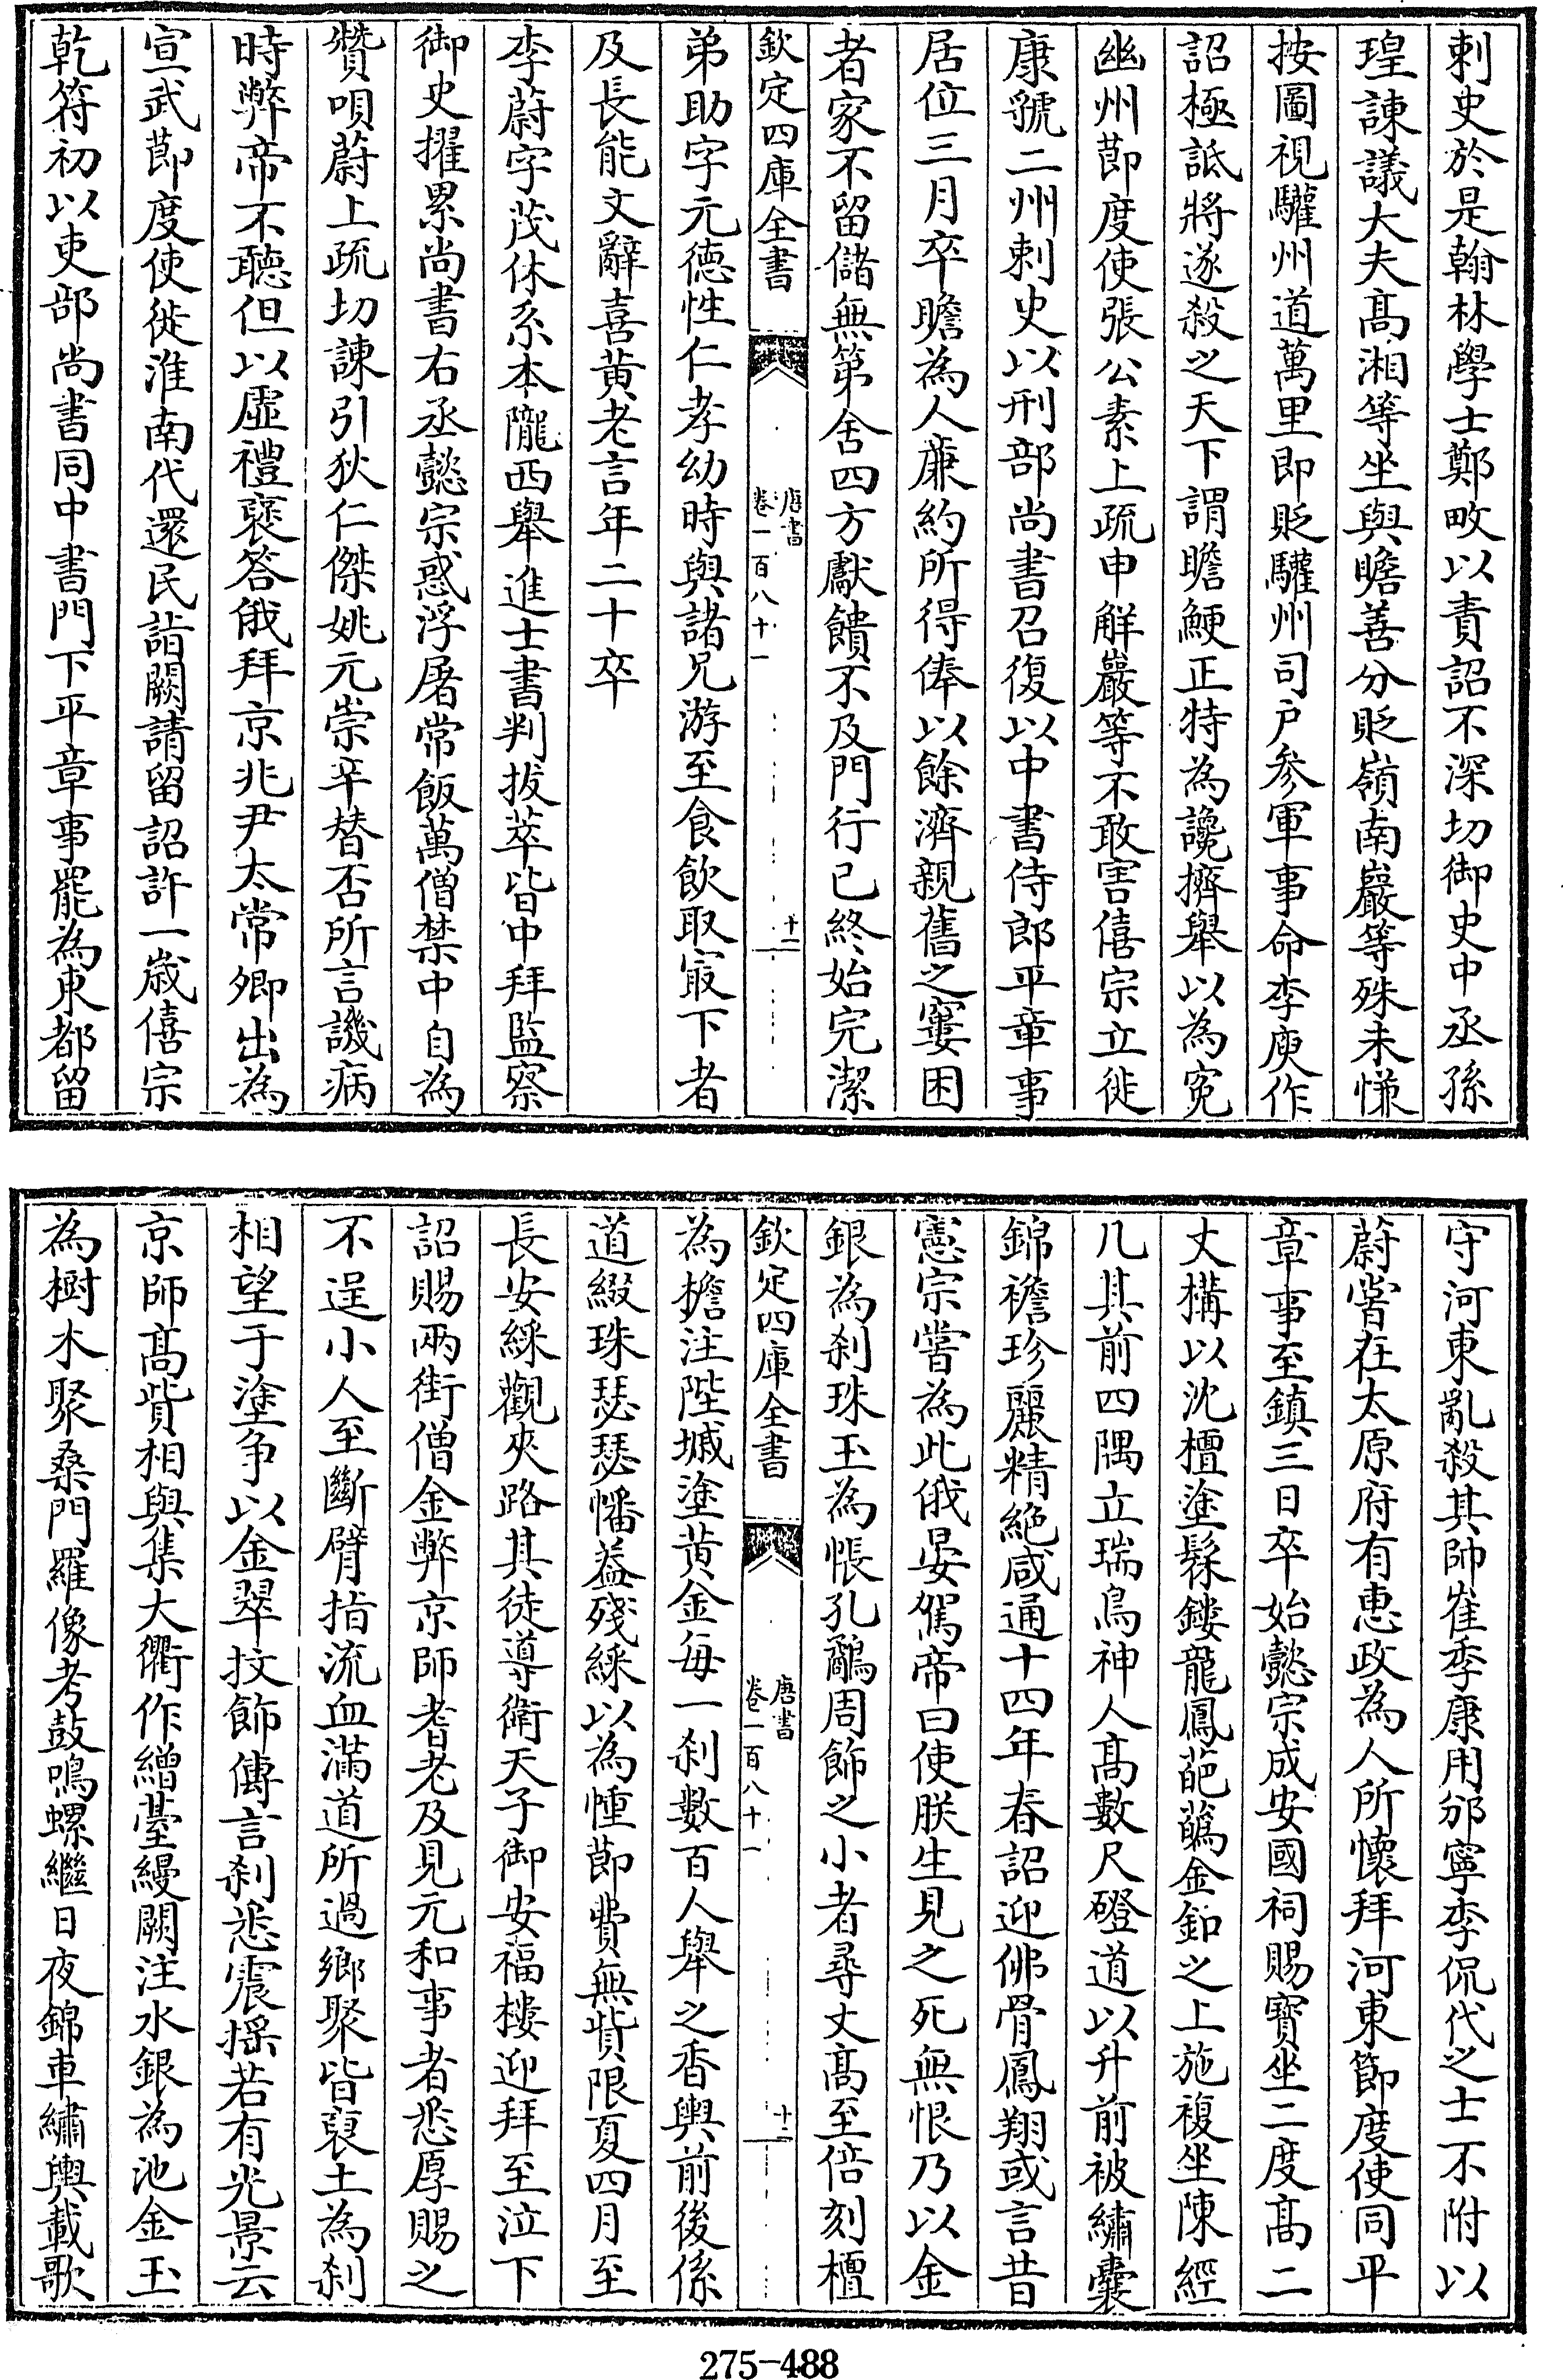 刺史於是翰林學士鄭畋以責詔不深切御史中丞孫
瑝諫議大夫髙湘等坐與瞻善分貶嶺南巖等殊未慊
按圖視驩州道萬里即貶驩州司户参軍事命李庾作
詔極詆將遂殺之天下謂瞻鯁正特為讒擠舉以為寃
幽州節度使張公素上疏申解巖等不敢害僖宗立徙
康虢二州刺史以刑部尚書召復以中書侍郎平章事
居位三月卒瞻為人廉約所得俸以餘濟親舊之窶困
者家不留儲無第舍四方獻饋不及門行已終始完潔
欽定四庫全書
唐書
卷一百八十一
十二
弟助字元德性仁孝幼時與諸兄游至食飲取㝡下者
及長能文辭喜黄老言年二十卒
李蔚字茂休系本隴西舉進士書判拔萃皆中拜監察
御史擢累尚書右丞懿宗惑浮屠常飯萬僧禁中自為
贊唄蔚上疏切諫引狄仁傑姚元崇辛替否所言譏病
時弊帝不聽但以虛禮襃答俄拜京兆尹太常卿出為
宣武節度使徙淮南代還民詣闕請留詔許一歲僖宗
乾符初以吏部尚書同中書門下平章事罷為東都留
守河東亂殺其帥崔季康用邠寧李侃代之士不附以
蔚嘗在太原府有惠政為人所懷拜河東節度使同平
章事至鎮三日卒始懿宗成安國祠賜寶坐二度髙二
丈構以沈檀塗髹鏤龍鳳葩蘤金釦之上施複坐陳經
几其前四隅立瑞鳥神人髙數尺磴道以升前被繡囊
錦襜珍麗精絶咸通十四年春詔迎佛骨鳳翔或言昔
憲宗嘗為此俄晏駕帝曰使朕生見之死無恨乃以金
銀為刹珠玉為帳孔鷸周飾之小者尋丈髙至倍刻檀
欽定四庫全書
唐書
卷一百八十一
十二
為檐注陛墄塗黄金每一刹數百人舉之香輿前後係
道綴珠瑟瑟幡蓋殘綵以為幢節費無貲限夏四月至
長安綵觀夾路其徒導衛天子御安福樓迎拜至泣下
詔賜兩街僧金幣京師耆老及見元和事者悉厚賜之
不逞小人至斷臂指流血滿道所過鄉聚皆裒土為刹
相望于塗争以金翠抆飾傳言刹悉震揺若有光景云
京師髙貲相與集大衢作繒臺縵闕注水銀為池金玉
為樹木聚桑門羅像考鼓鳴螺繼日夜錦車繡輿載歌
275-488